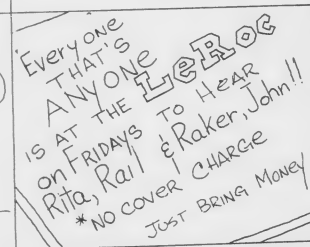 "Everyone
THAT'S
ANYONE
IS AT THE LeRoc
on FRIDAYS TO HEAR
Rita, Rail & Raker, John!!
*NO COVER CHARGE
JUST BRING MONEY